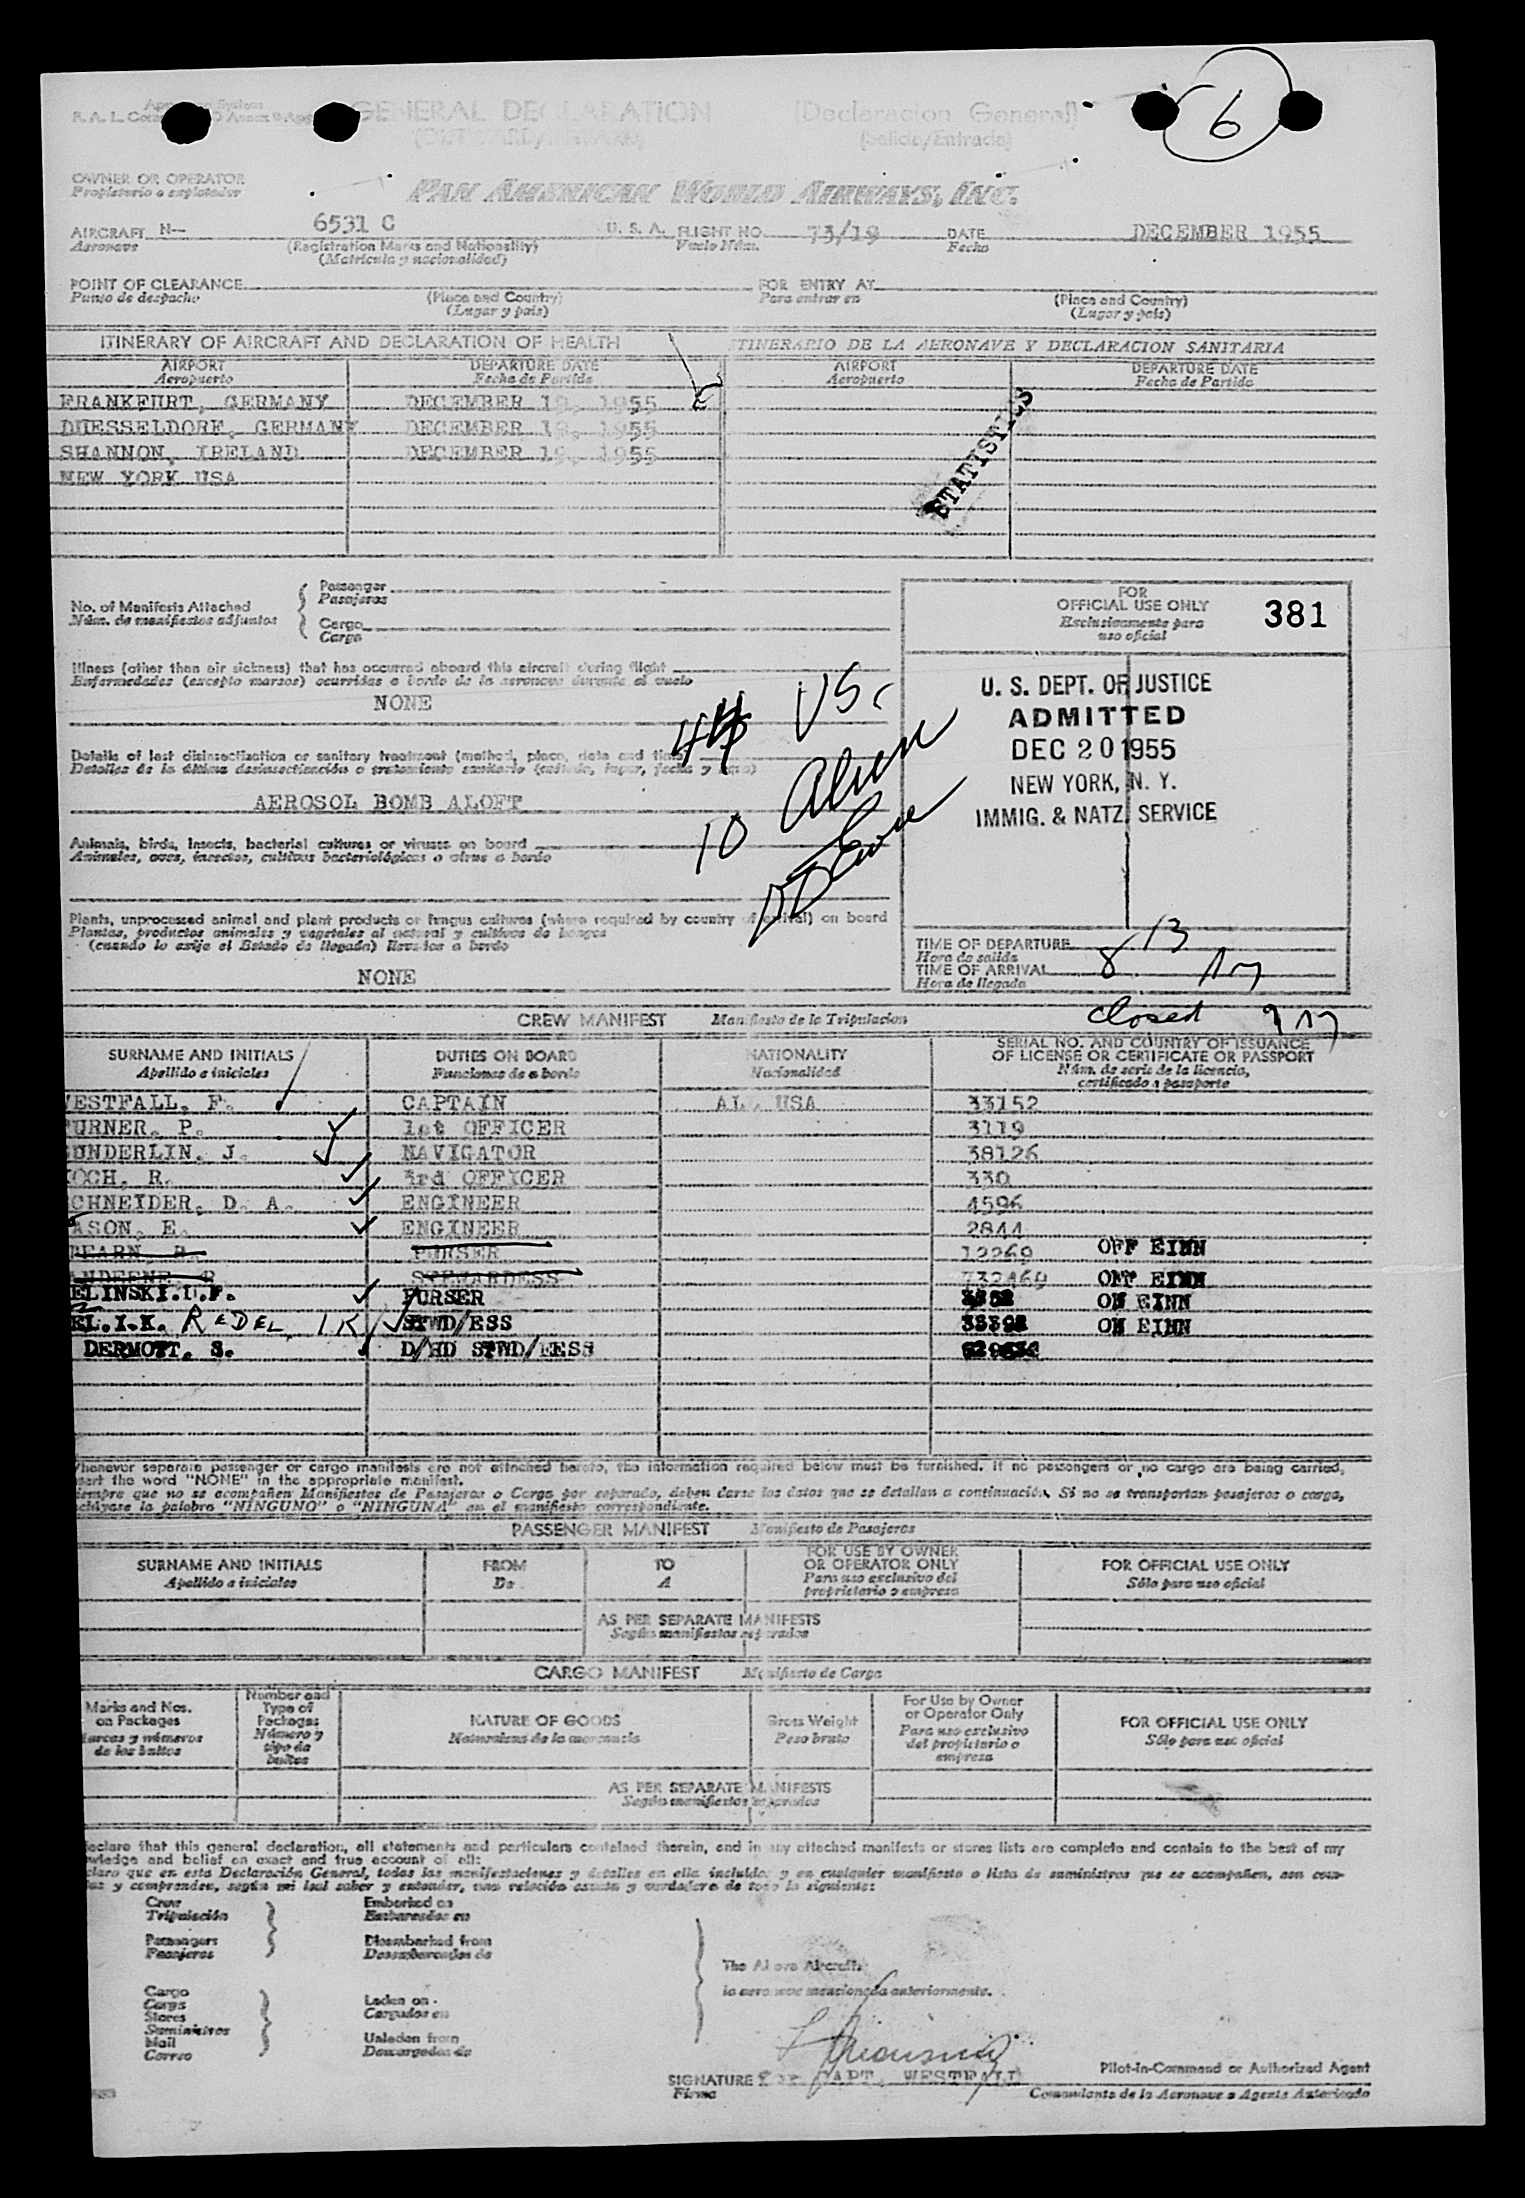 6
GENERAL DECLARATION (Declaracion General)
(Salida/Entrada)
OWNER OR OPERATOR
Propietario o explotador
PAN AMERICAN WORLD AIRWAYS, INC.
AIRCRAFT N-- 6531 C U. S. A. FLIGHT NO. 73/19 DATE DECEMBER 1955
Aeronave (Registration Marks and Nationality) Vuelo Núm. Fecha
(Matricula y nacionalidad)
POINT OF CLEARANCE FOR ENTRY AT
Punto de despacho (Place and Country) Para entrar en (Place and Country)
(Lugar y pais) (Lugar y pais)
ITINERARY OF AIRCRAFT AND DECLARATION OF HEALTH ITINERARIO DE LA AERONAVE Y DECLARACION SANITARIA
AIRPORT DEPARTURE DATE AIRPORT DEPARTURE DATE
Aeropuerto Fecha de Partida Aeropuerto Fecha de Partida
FRANKFURT, GERMANY DECEMBER 19, 1955
DUESSELDORF, GERMANY DECEMBER 19, 1955
SHANNON, IRELAND DECEMBER 19, 1955
NEW YORK USA
STATISTICS
No. of Manifests Attached
Núm. de manifiestos adjuntos
Passenger
Pasajeros
Cargo
Carga
FOR
OFFICIAL USE ONLY
Exclusivamente para
uso oficial
381
Illness (other than air sickness) that has occurred aboard this aircraft during flight
Enfermedades (excepto mareos) ocurridas a bordo de la aeronave durante el vuelo
NONE
44 US.
10 Alien
U. S. DEPT. OF JUSTICE
ADMITTED
DEC 20 1955
NEW YORK, N. Y.
IMMIG. & NATZ. SERVICE
Details of last disinsectization or sanitary treatment (method, place, date and time)
Detalles de la última desinsectización o tratamiento sanitario (método, lugar, fecha y hora)
AEROSOL BOMB ALOFT
Animals, birds, insects, bacterial cultures or viruses on board
Animales, aves, insectos, cultivos bacteriológicos o virus a bordo
Plants, unprocessed animal and plant products or fungus cultures (where required by country of arrival) on board
Plantas, productos animales y vegetales al natural y cultivos de hongos
(cuando lo exija el Estado de llegada) llevados a bordo
NONE
TIME OF DEPARTURE
Hora de salida
TIME OF ARRIVAL 8 13 AM
Hora de llegada
closed 9 AM
CREW MANIFEST Manifiesto de la Tripulacion
SURNAME AND INITIALS DUTIES ON BOARD NATIONALITY SERIAL NO. AND COUNTRY OF ISSUANCE
OF LICENSE OR CERTIFICATE OR PASSPORT
Apellido e iniciales Funciones de a bordo Nacionalidad Núm. de serie de la licencia,
certificado o pasaporte
ESTFALL, F. CAPTAIN AL. USA 33152
URNER, P. 1st OFFICER 3119
UNDERLIN, J. NAVIGATOR 38126
OCH, R. 3rd OFFICER 330
CHNEIDER, D. A. ENGINEER 4596
ASON, E. ENGINEER 2844
EARN, PURSER 12269 OFF EINN
STEWARDESS 732464 OFF EINN
ELINSKI.U.F. PURSER ON EINN
EL.I.K. REDEL, IK STWD/ESS ON EINN
DERMOTT, S. D/HD STWD/EESS
Whenever separate passenger or cargo manifests are not attached hereto, the information required below must be furnished. If no passengers or no cargo are being carried,
insert the word "NONE" in the appropriate manifest.
Siempre que no se acompañen Manifiestos de Pasajeros o Carga por separado, deben darse los datos que se detallan a continuación. Si no se transportan pasajeros o carga,
inclúyase la palabra "NINGUNO" o "NINGUNA" en el manifiesto correspondiente.
PASSENGER MANIFEST Manifiesto de Pasajeros
SURNAME AND INITIALS FROM TO FOR USE BY OWNER
OR OPERATOR ONLY FOR OFFICIAL USE ONLY
Apellido e iniciales De A Para uso exclusivo del
propietario o empresa Sólo para uso oficial
AS PER SEPARATE MANIFESTS
Según manifiestos separados
CARGO MANIFEST Manifiesto de Carga
Marks and Nos.
on Packages
Marcas y números
de los bultos
Number and
Type of
Packages
Número y
tipo de
bultos
NATURE OF GOODS
Naturaleza de la mercancia
Gross Weight
Peso bruto
For Use by Owner
or Operator Only
Para uso exclusivo
del propietario o
empresa
FOR OFFICIAL USE ONLY
Sólo para uso oficial
AS PER SEPARATE MANIFESTS
Según manifiestos separados
declare that this general declaration, all statements and particulars contained therein, and in any attached manifests or stores lists are complete and contain to the best of my
knowledge and belief an exact and true account of all:
claro que en esta Declaración General, todas las manifestaciones y detalles en ella incluidos y en cualquier manifiesto o lista de suministros que se acompañen, son com-
tos y comprenden, según mi leal saber y entender, una relación exacta y verdadera de todo lo siguiente:
Crew
Tripulación
Passengers
Pasajeros
Embarked on
Embarcados en
Disembarked from
Desembarcados de
Cargo
Carga
Stores
Suministros
Mail
Correo
Laden on
Cargados en
Unladen from
Descargados de
The Above Aircraft:
la aeronave mencionada anteriormente.
SIGNATURE for CAPT. WESTFALL Pilot-in-Command or Authorized Agent
Firma Comandante de la Aeronave o Agente Autorizado